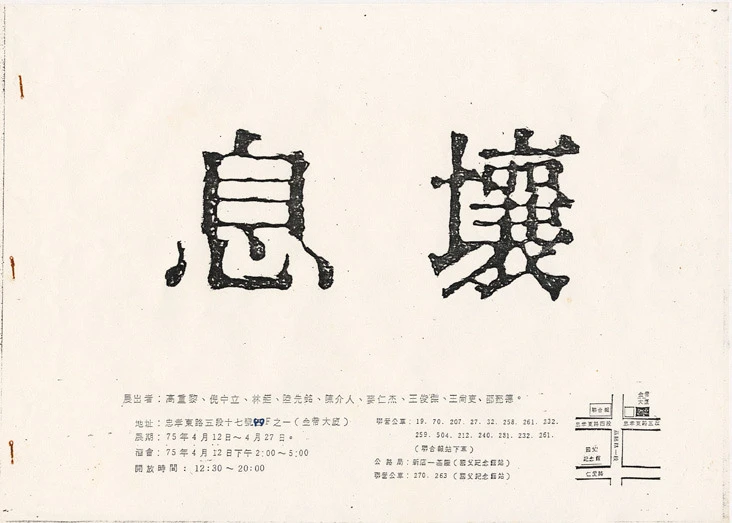 息壤
展出者：高重黎、倪中立、林鉅、陸先銘、陳介人、麥仁杰、王俊傑、王尚更、邵懿德。
地址：忠孝東路五段十七號99F之一（金帶大廈）
展期：75年4月12日～4月27日。
酒會：75年4月12日下午2:00～5:00
開放時間：12:30～20:00
聯營公車：19. 70. 207. 27. 32. 258. 261. 232.
259. 504. 212. 240. 281. 232. 261.
（聯合報站下車）
公路局：新店－基隆（國父紀念館站）
聯營公車：270. 263（國父紀念館站）
金帶大廈
聯合報
忠孝東路四段
忠孝東路五段
國父紀念館
仁愛路